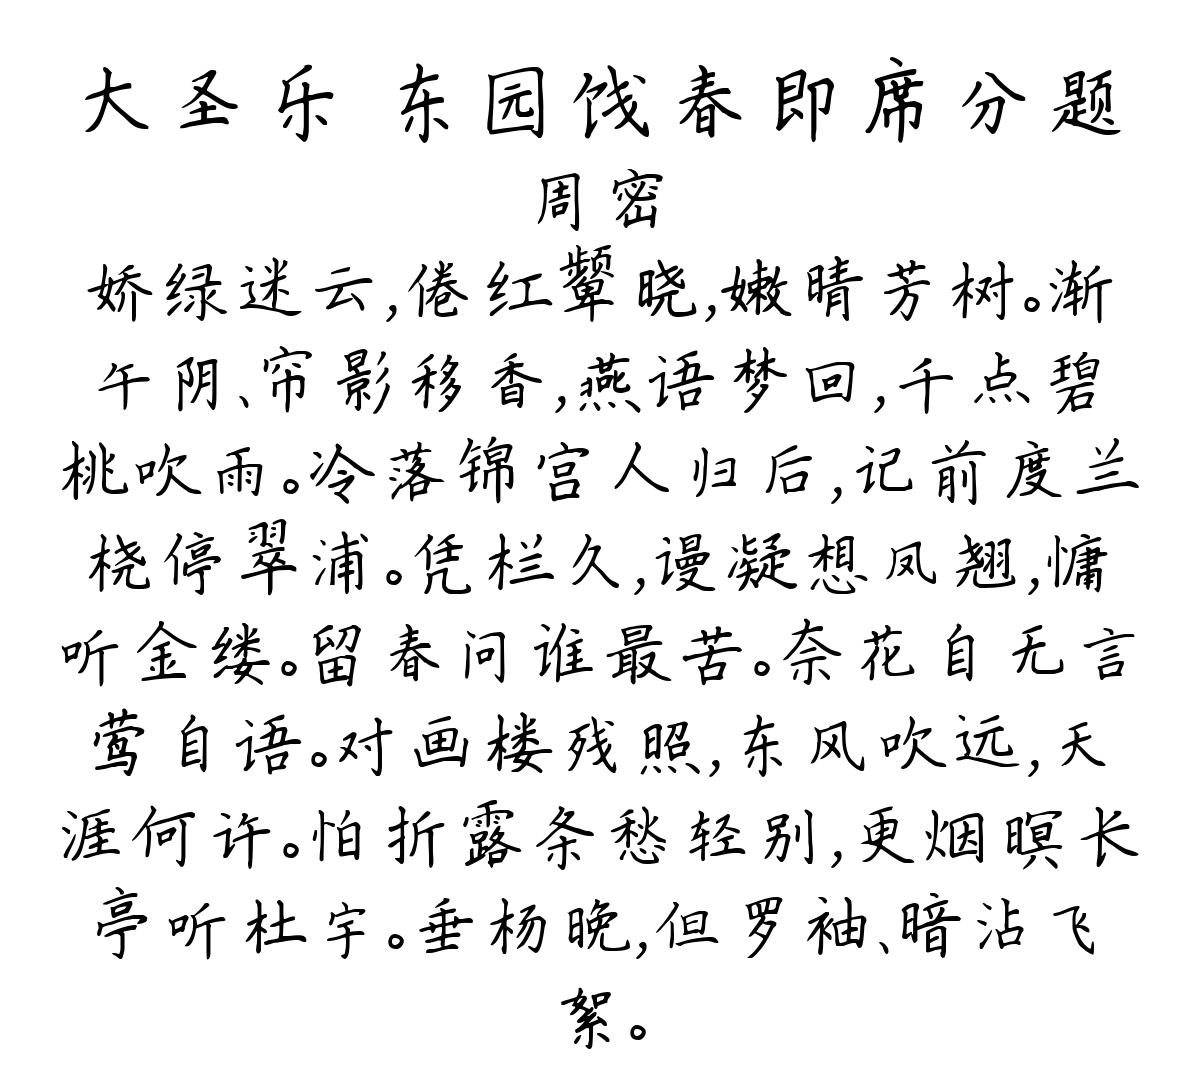 大圣乐 东园饯春即席分题
周密
娇绿迷云,倦红颦晓,嫩晴芳树。渐
午阴、帘影移香,燕语梦回,千点碧
桃吹雨。冷落锦宫人归后,记前度兰
桡停翠浦。凭栏久,谩凝想凤翘,慵
听金缕。留春问谁最苦。奈花自无言
莺自语。对画楼残照,东风吹远,天
涯何许。怕折露条愁轻别,更烟暝长
亭听杜宇。垂杨晚,但罗袖、暗沾飞
絮。